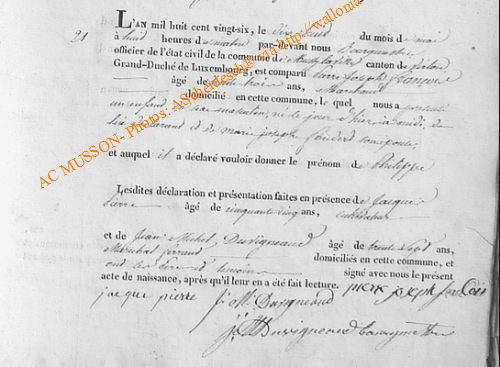 21
L'AN mil huit cent vingt-six, le dix huit du mois de mai
à huit heures du matin par-devant nous Bourguet
officier de l'état civil de la commune de canton de
Grand-Duché de Luxembourg, est comparu Pierre Joseph
âgé de trois ans, Marchand
domicilié en cette commune, le quel nous a présenté
un enfant du sexe masculin, né le jour d'hier, à midi, de
lui déclarant et de marie joseph son épouse
et auquel il a déclaré vouloir donner le prénom de Philippe
Lesdites déclaration et présentation faites en présence de Jacque
Pierre âgé de cinquante cinq ans, cultivateur
et de Jean Michel Duvigneaud âgé de trente sept ans,
Maréchal ferrant domiciliés en cette commune, et
ont les père et témoins signé avec nous le présent
acte de naissance, après qu'il leur en a été fait lecture. pierre joseph
jacque pierre J: M: Duvigneaud
Duvigneaud
AC MUSSON- Photos: AScheideschi@ http://wallonia